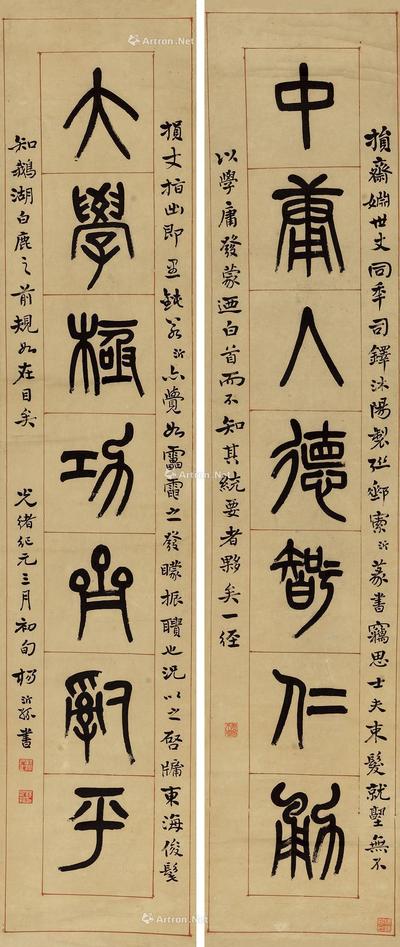 中庸人德智仁勇
損齋姻世丈同年司鐸沭陽製聯郵索沂篆書竊思士夫束髮就塾無不
以學庸發蒙迺白首而不知其統要者夥矣一經
大學極功齊治平
損丈指出即至鈍若沂亦覺如雷霆之發矇振聵也況以之啓牖東海俊髦
知鵝湖白鹿之前規如在目矣
光緒紀元三月初旬楊沂孫書
Artron.Net
Artron.Net